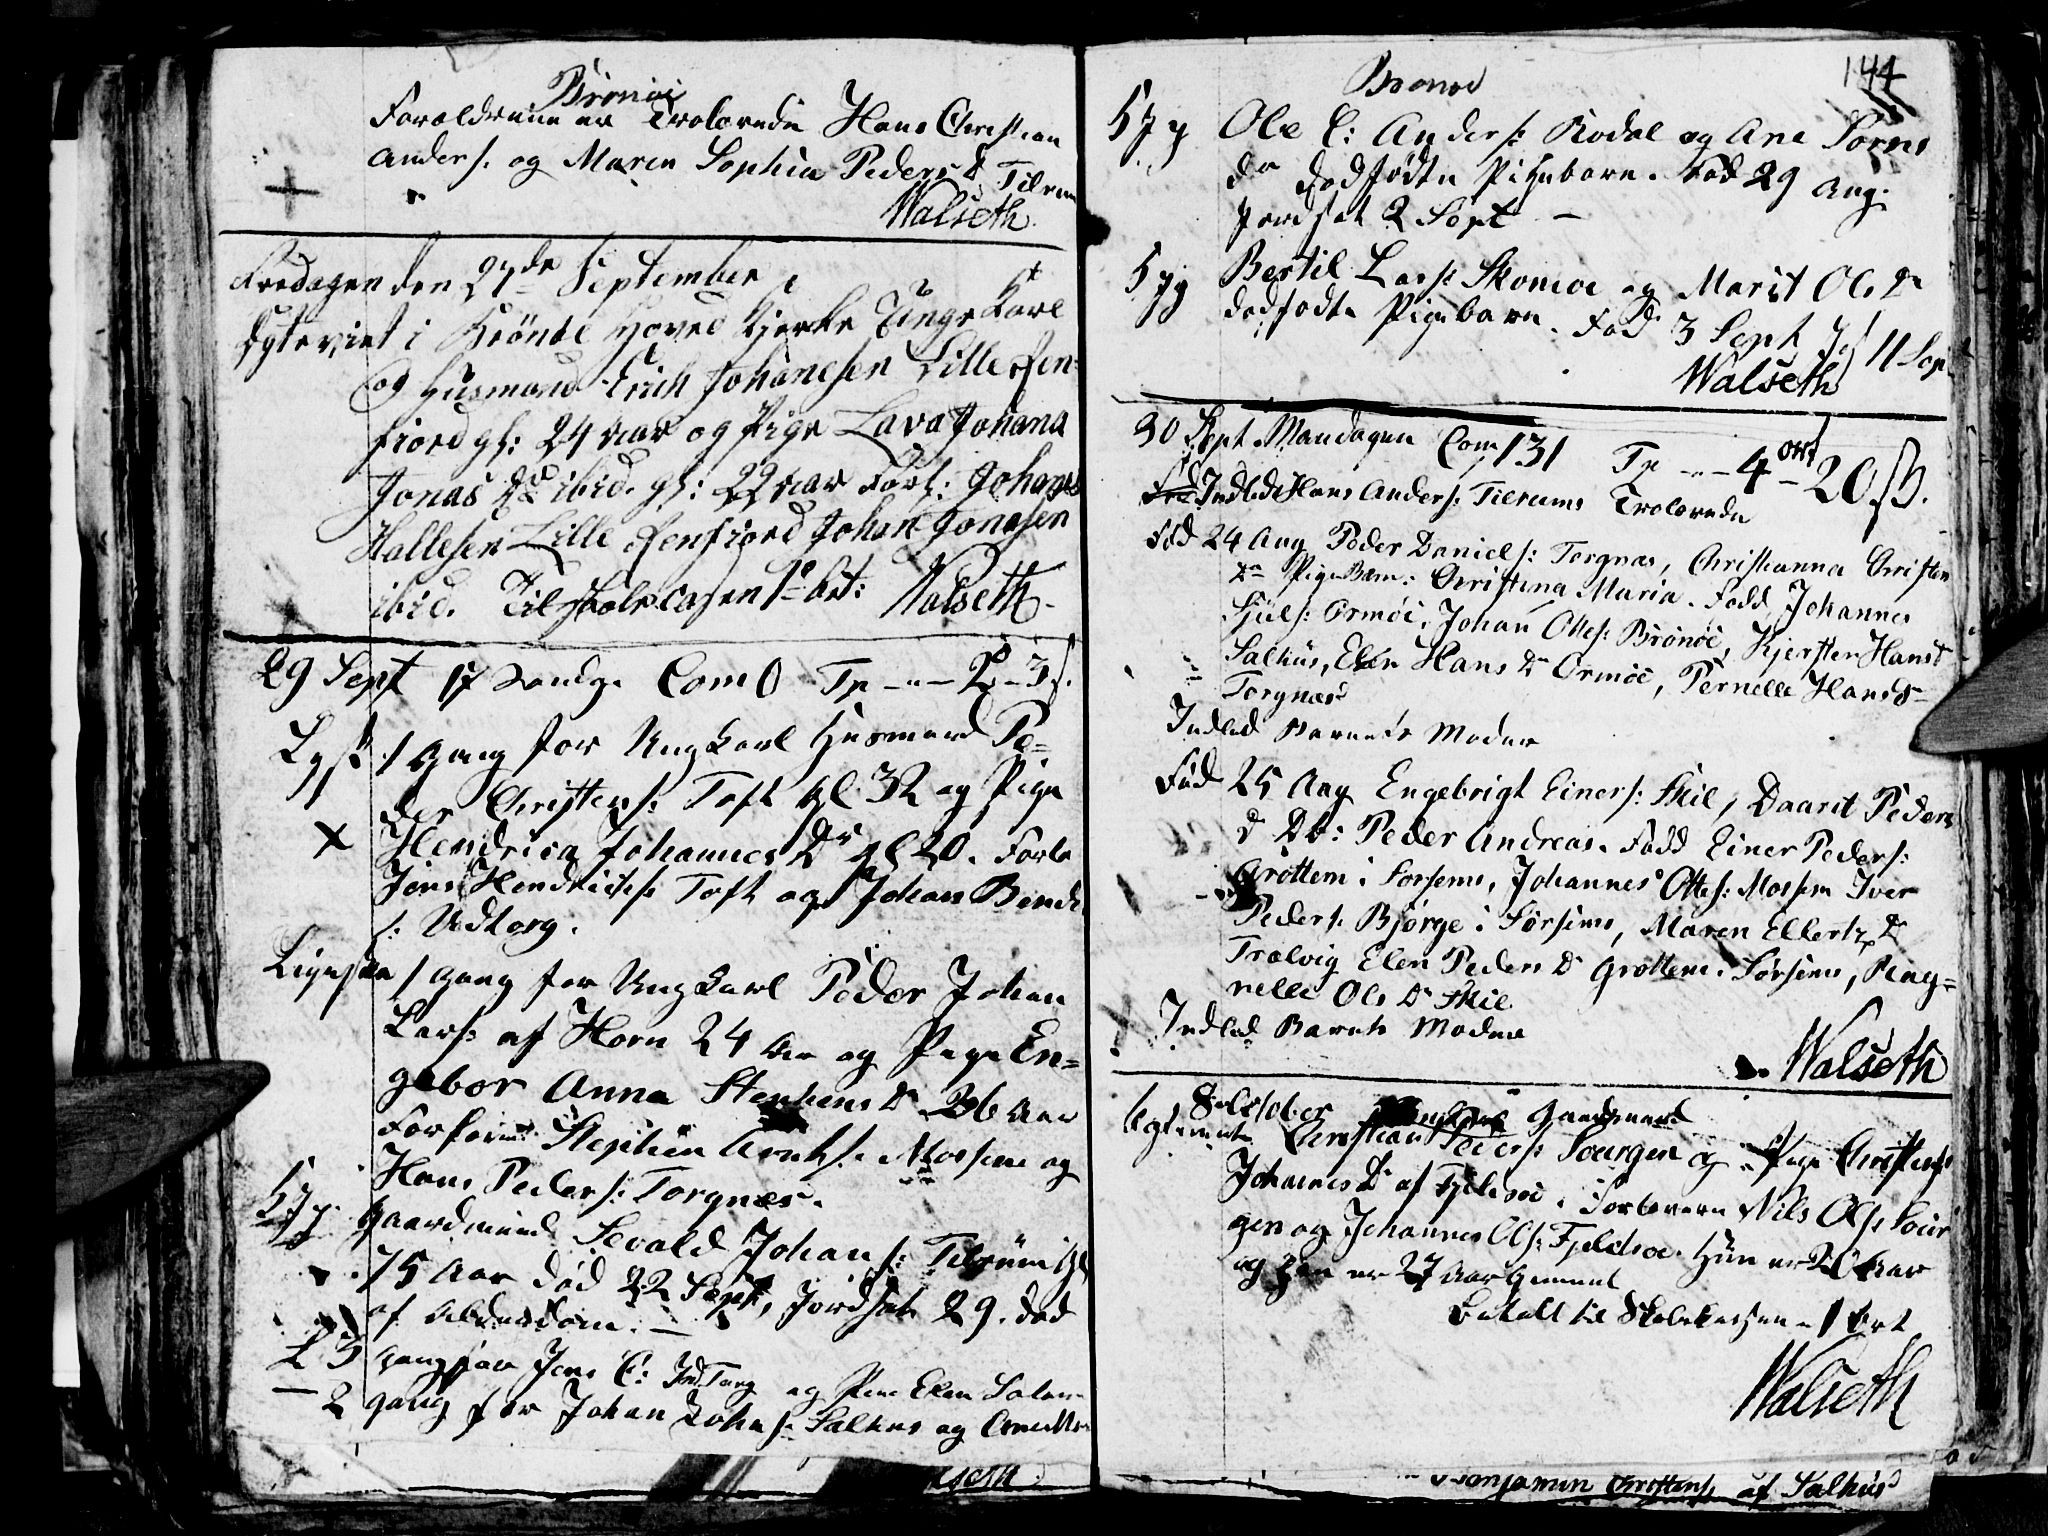 Brönöe
Forældrene ere Trolovede Hans Christian
Anders: og Maren Sophia Peders D Tilrum
Walseth
Fredagen den 27de September
Egteviet i Brönöe Hoved Kjerke Unge Karl
og Husmand Erich Johanesen Lille
fiord gl: 24 Aar og Pige Johana
Jonas D ibid. gl: 22 Aar Forl: Johanes
Hallesen Lille Johan Jonasen
ibid. Til Skole Casen 1 Ort: Walseth
29 Sept 17 Søndg. Com 0 Tp - - 2 - 3
Lyst 1 Gang for Ungkarl Husmand Pe=
der Christens: Toft gl 32 og Pige
Hendrica Johannes Dr gl 20. Forlo
Jens Hendrichs: Toft og Johan
s: Udtorg.
Ligesaa 1 Gang for Ungkarl Peder Johan
Lars: af Horn 24 Aar og Pige En=
gebor Anna Stephens D 26 Aar
Forlorne Stephen Arnts: Mossem og
Hans Peders: Torgnæs.
Gaardmand Sevald Johans: Tilrum gl
75 Aar død 22 Sept, Jordsat 29. død
af Alderdom.
L 3 Gang for Jens C: Indr Torg og Pige Elen
- 2 Gang for Johan Johns: Salhus og
Brönöe 144
Ole C: Anders: Kodal og Ane Sörens
D dødfødte Pigebarn. Fød 29 Aug.
Jordsat 2 Sept -
Bertil Lars: Skomoe og Marit Ols D
dødfødte Pigebarn. Fød 3 Sept J 11 Sep
Walseth
30 Sept Mandagen Com 131 Tp - - 4 ort - 20 ß.
Indled Hans Anders: Tilrums Trolovede
Fød 24 Aug Peder Daniels: Torgnæs, Christianna Christen
D Pigebarn: Christina Maria. Fadd Johannes
Siuls: Ormöe, Johan Ottes: Brönöe, Kjersten Hans D
Salhus, Elen Hans D Ormöe, Pernelle Hans D
Torgnæs
Indled Barnets Moder
Fød 25 Aug Engebrigt Einers: Skil, Daarit Peders
D Db: Peder Andreas. Fadd Einer Peders:
Grøttem i Sørsems, Johannes Ottes: Mossem Iver
Peders: Bjørge i Sørsems, Maren Ellertz D
Trælvig Elen Peders D Grøttem. Sørsems, Rag=
nelle Ols D Skil
Indled Barnets Moder
Walseth
8 October Gaardmand
Christian Peders: og Pige
Johannes D af Fjeldsoe. Forlovere Nils Ols:
gen og Johannes Ols: Fjeldsoe. Hun er 20 Aar
og Han er 27 Aar Gammel
Betalt til Skolekassen 1 Ort
Walseth
Benjamin Christens: af Salhus